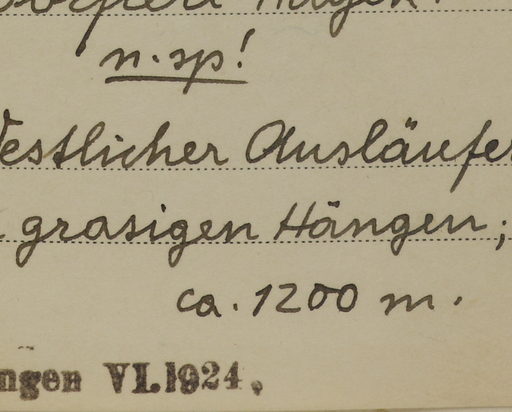 n. sp!
Westlicher Ausläufer
grasigen Hängen;
ca. 1200 m.
ngen VI.1924.